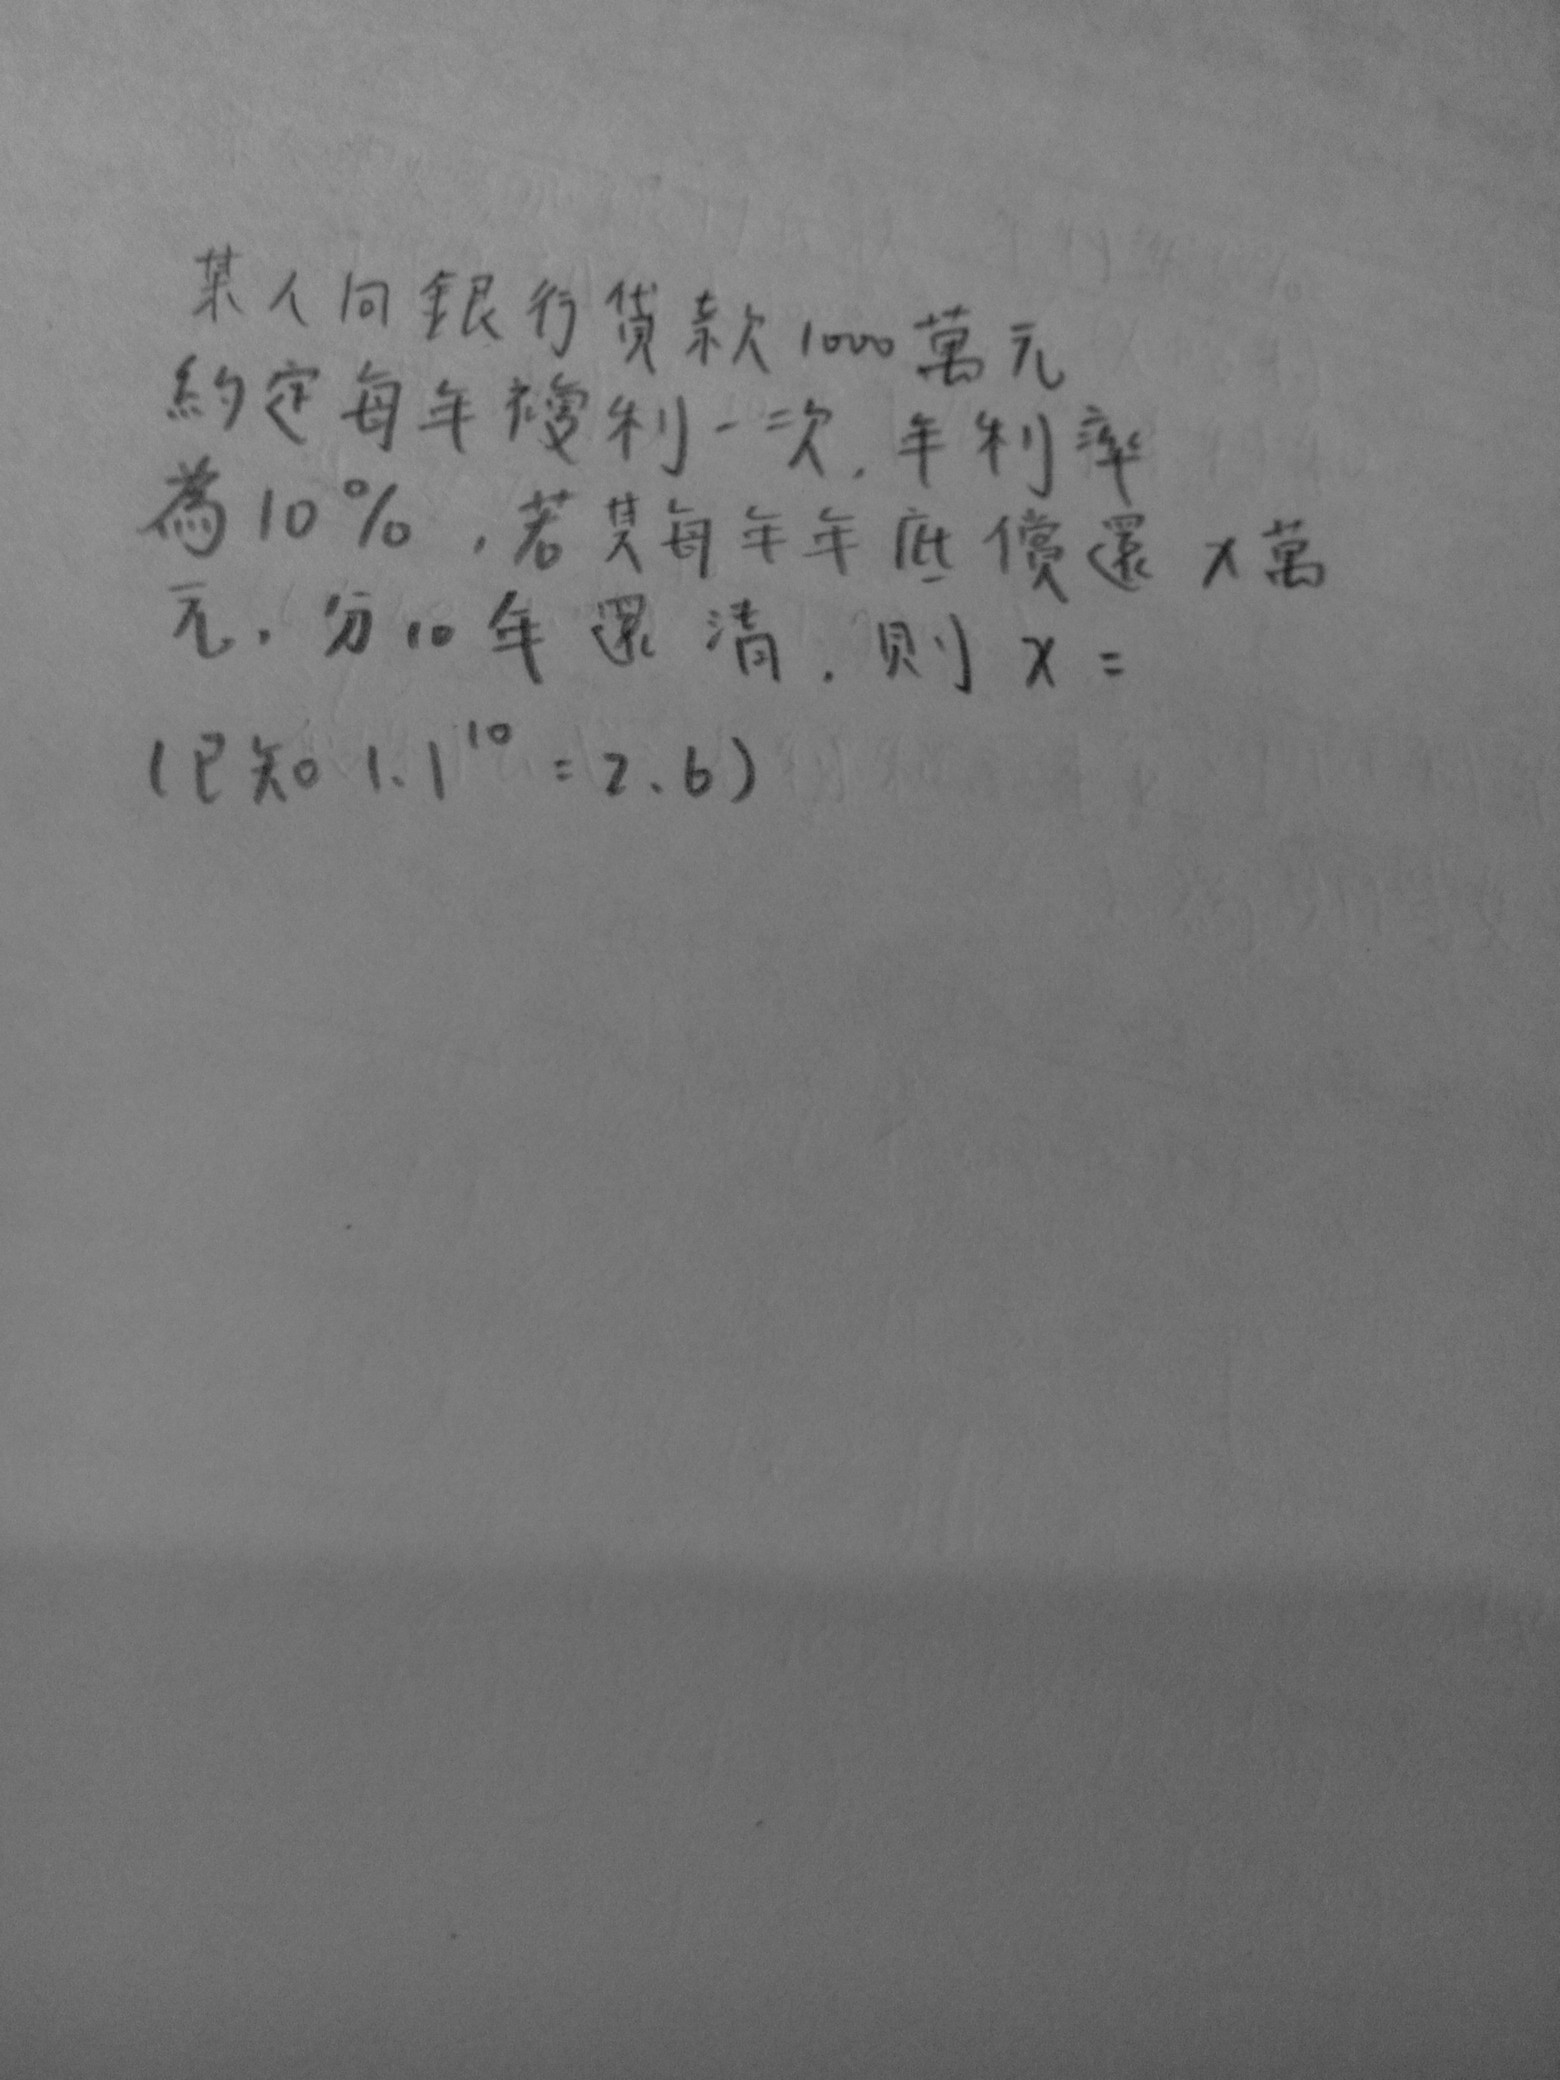 某人向銀行貸款1000萬元
約定每年複利一次,年利率
為10%,若某每年年底償還x萬
元,分10年還清,則x=
(已知1.1^10=2.6)